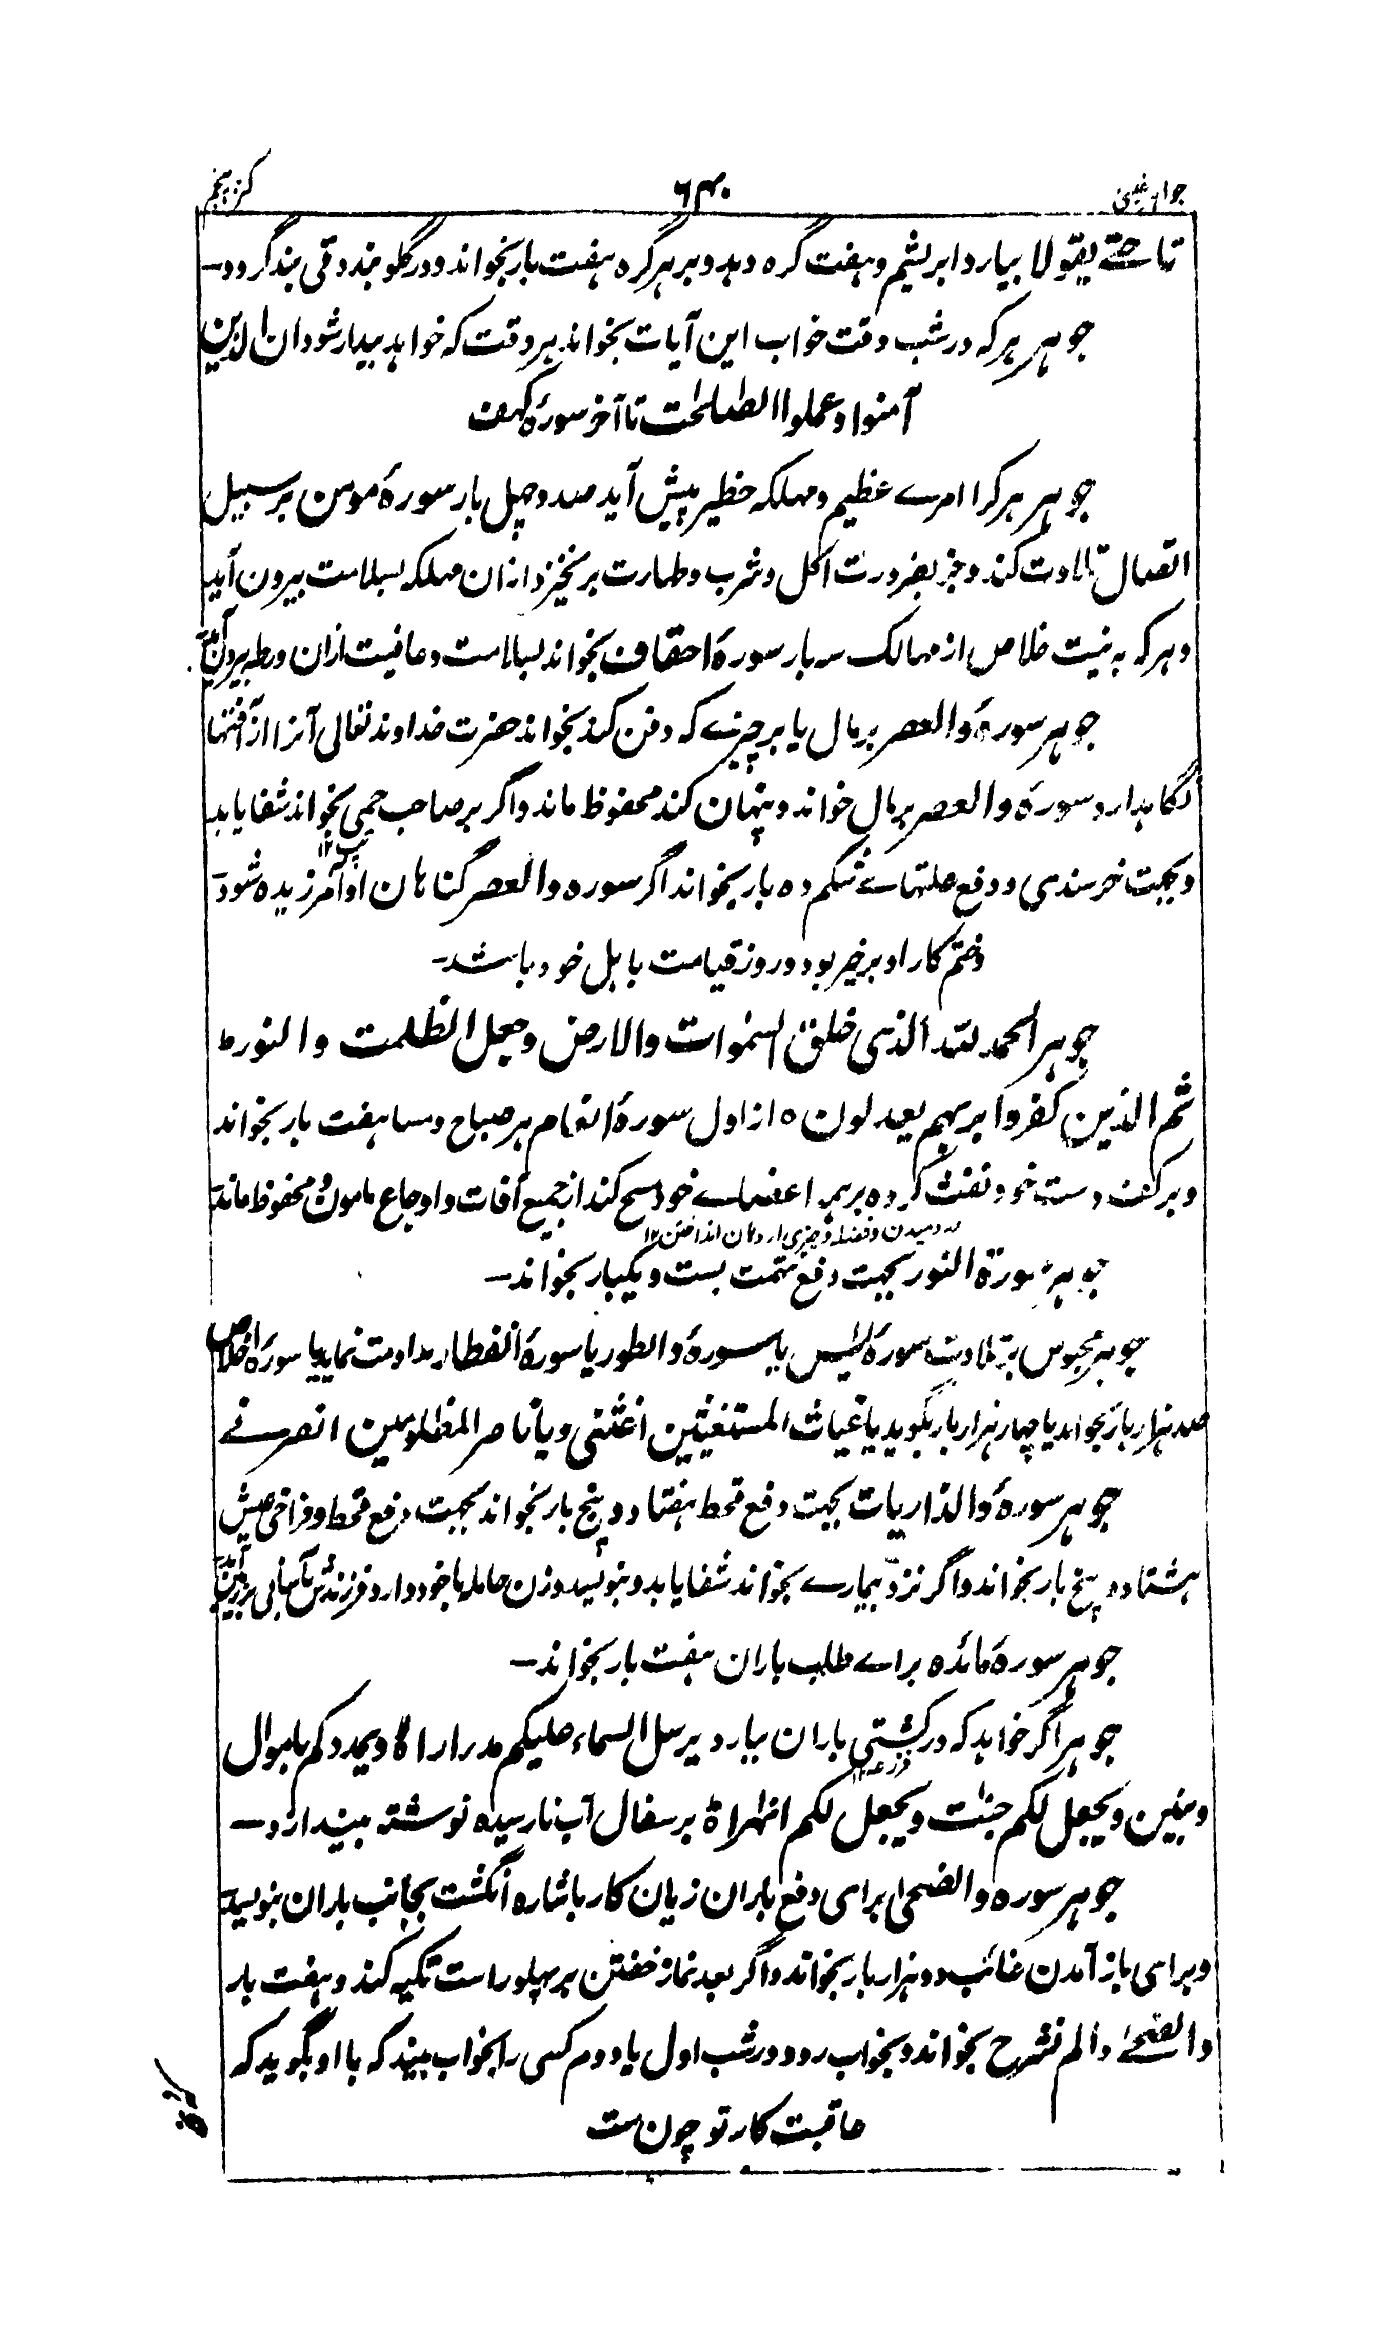 جواهر غیبی ۶۴۰ کنز پنجم
تا حتے یقولا بیارد ابریشم و هفت گره دهد و بر هر گره هفت بار بخواند و در گلو بندد قی بند گردد۔
جوهر هر که در شب وقت خواب این آیات بخواند هر وقت که خواهد بیدار شود ان الذین
آمنوا و عملوا الصٰلحٰت تا آخر سورۂ کهف
جوهر هر کرا امرے عظیم و مهلکه خطیر پیش آید صد و چهل بار سورۂ مومن بر سبیل
اتصال تلاوت کند و جز بضرورت اکل و شرب و طهارت برنخیزد ازان مهلکه بسلامت بیرون آید
و هر که به نیت خلاص از مهالک سه بار سورۂ احقاف بخواند بسلامت و عافیت ازان ورطه بیرون آید
جوهر سورۂ والعصر بر مال یا بر چیزے که دفن کند بخواند حضرت خداوند تعالی آنرا از آفتها
نگاهدارد و سورۂ والعصر بر مال خواند و پنهان کند محفوظ ماند و اگر بر صاحب حمی بخواند شفا یابد
تپ ۱۲
و بجهت خرسندی و دفع علتهاے شکم ده بار بخواند اگر سوره والعصر گناهان او آمرزیده شود
و ختم کار او بر خیر بود و روز قیامت با اهل خود باشد۔
جوهر الحمد لله الذی خلق السمٰوات والارض و جعل الظلمت والنور ط
ثم الذین کفروا بربهم یعدلون ۵ از اول سورۂ انعام هر صباح و مسا هفت بار بخواند
و بر کف دست خود نفث کرده بر همه اعضاے خود مسح کند از جمیع آفات و اوجاع مامون و محفوظ ماند
جوهر سورة النور بجهت دفع تهمت بست و یکبار بخواند۔
جوهر محبوس بتلاوت سورۂ یٰس یا سورۂ والطور یا سورۂ انفطار مداومت نماید یا سورۂ اخلاص
صد هزار بار بخواند یا چهار هزار بار بگوید یا غیاث المستغیثین اغثنی و یا ناصر المظلومین انصرنے
جوهر سورۂ والذاریات بجهت دفع قحط هفتاد و پنج بار بخواند بجهت دفع قحط و فراخی عیش
هشتاد و پنج بار بخواند و اگر نزد بیمارے بخواند شفا یابد و بنویسد و زن حامله با خود دارد فرزندش بآسانی بیرون آید
جوهر سورۂ مائده براے طلب باران هفت بار بخواند۔
جوهر اگر خواهد که در کشتی باران ببارد یرسل السماء علیکم مدرارا لا و یمددکم باموال
و بنین و یجعل لکم جنٰت و یجعل لکم انهٰرا ه بر سفال آب نارسیده نوشته بیندازد۔
جوهر سوره والضحی برای دفع باران زیان کار باشاره انگشت بجانب باران بنویسد
و برای باز آمدن غائب دو هزار بار بخواند و اگر بعد نماز خفتن بر پهلو راست تکیه کند و هفت بار
والضحٰے و الم نشرح بخواند و بخواب رود در شب اول یا دوم کسی را بخواب بیند که با او بگوید که
عاقبت کار تو چون ست